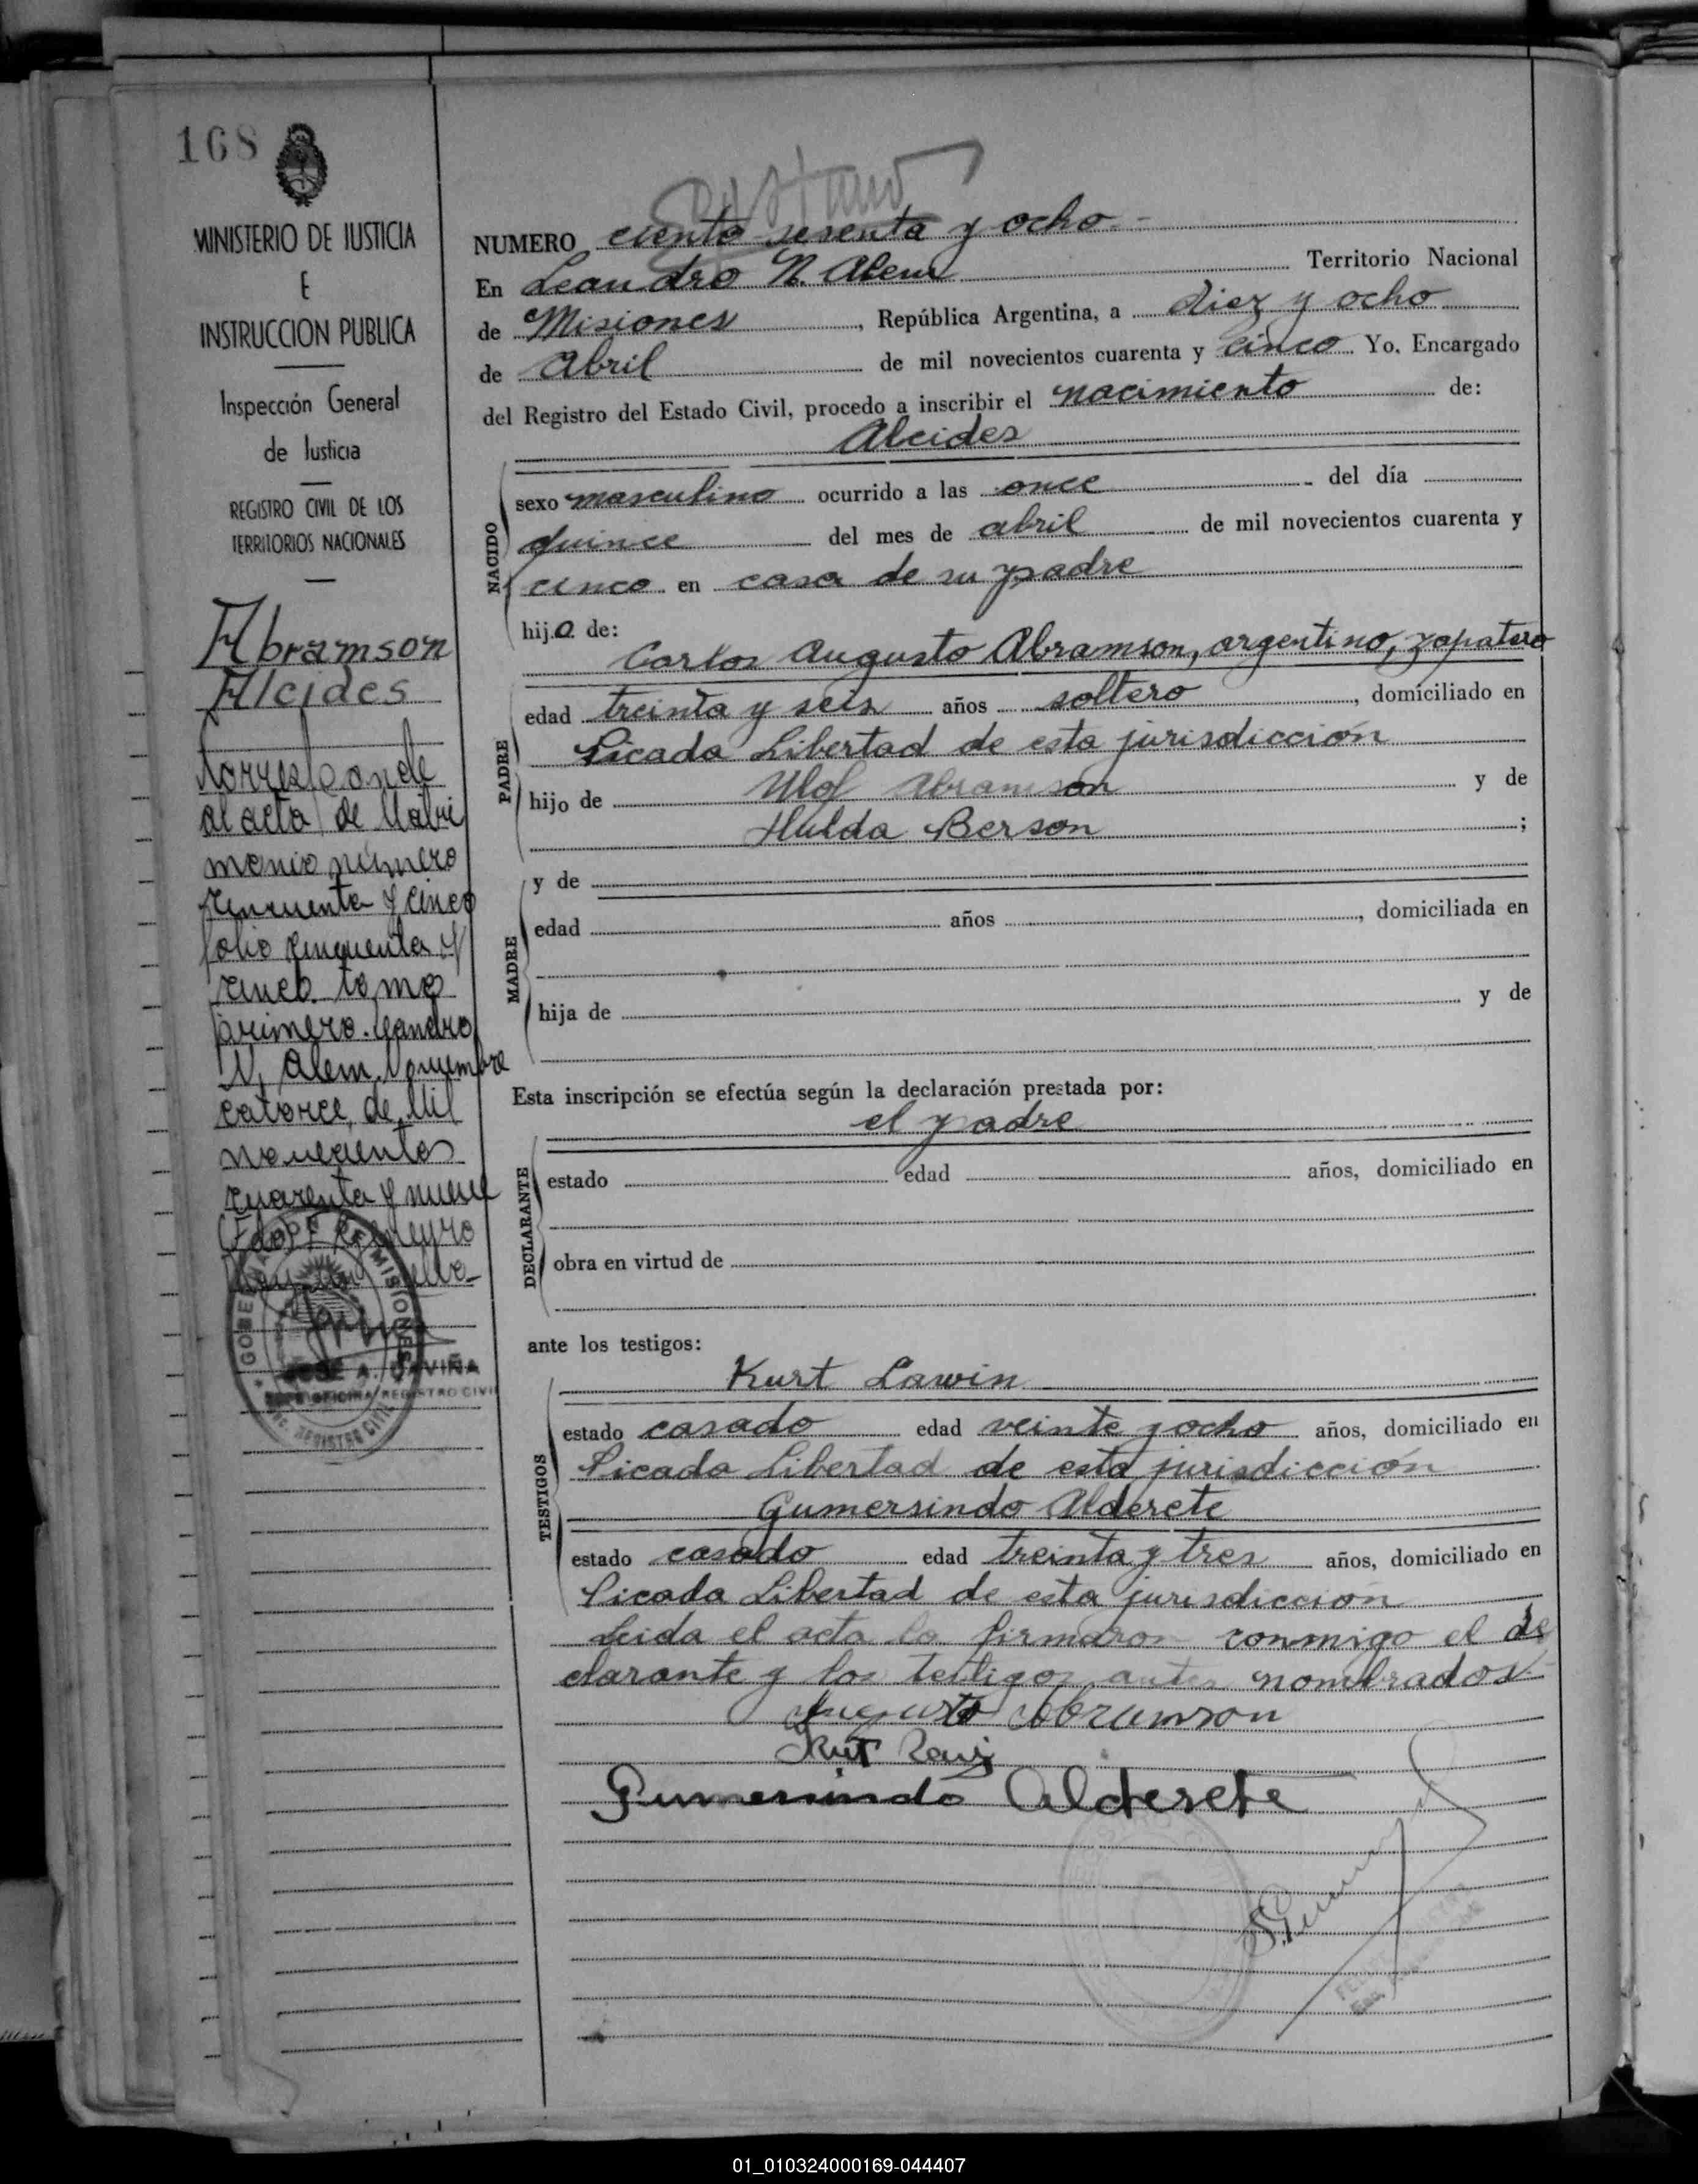 168
MINISTERIO DE JUSTICIA
E
INSTRUCCION PUBLICA
Inspección General
de Justicia
REGISTRO CIVIL DE LOS
TERRITORIOS NACIONALES
Abramson
Alcides
Corresponde
al acta de Matri
monio número
cincuenta y cinco
folio cincuenta y
cinco tomo
primero. Leandro
N. Alem, Noviembre
catorce de mil
novecientos
cuarenta y nueve
GOBERNACION DE MISIONES
JOSE A. GAVIÑA
JEFE OFICINA REGISTRO CIVIL
NUMERO ciento sesenta y ocho.-
En Leandro N. Alem Territorio Nacional
de Misiones, República Argentina, a diez y ocho
de Abril de mil novecientos cuarenta y cinco Yo. Encargado
del Registro del Estado Civil, procedo a inscribir el nacimiento de:
Alcides
NACIDO
sexo masculino ocurrido a las once del día
quince del mes de abril de mil novecientos cuarenta y
cinco en casa de su padre
hijo de:
Carlos Augusto Abramson, argentino, zapatero
PADRE
edad treinta y seis años soltero, domiciliado en
Picada Libertad de esta jurisdicción
hijo de Olof Abramson y de
Hulda Berson;
MADRE
y de
edad años, domiciliada en
hija de y de
Esta inscripción se efectúa según la declaración prestada por:
el padre
DECLARANTE
estado edad años, domiciliado en
obra en virtud de
ante los testigos:
Kurt Lawin
TESTIGOS
estado casado edad veinte y ocho años, domiciliado en
Picada Libertad de esta jurisdicción
Gumersindo Alderete
estado casado edad treinta y tres años, domiciliado en
Picada Libertad de esta jurisdiccion
Leida el acta la firmaron conmigo el de
clarante y los testigos antes nombrados
Augusto Abramson
Gumersindo Alderete
01_010324000169-044407